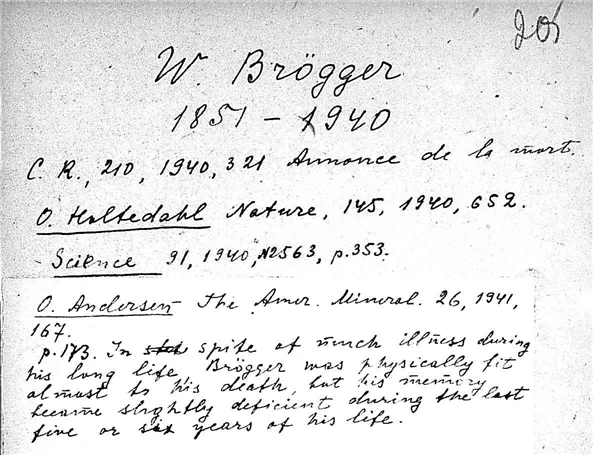 205
W. Brögger
1851 – 1940
C. R., 210, 1940, 321 Annonce de la mort.
O. Holtedahl Nature, 145, 1940, 652.
Science 91, 1940, N2563, p. 353.
O. Andersen The Amer. Mineral. 26, 1941,
167.
p. 173. In spite of much illness during
his long life Brögger was physically fit
almost to his death, but his memory
became slightly deficient during the last
five or six years of his life.